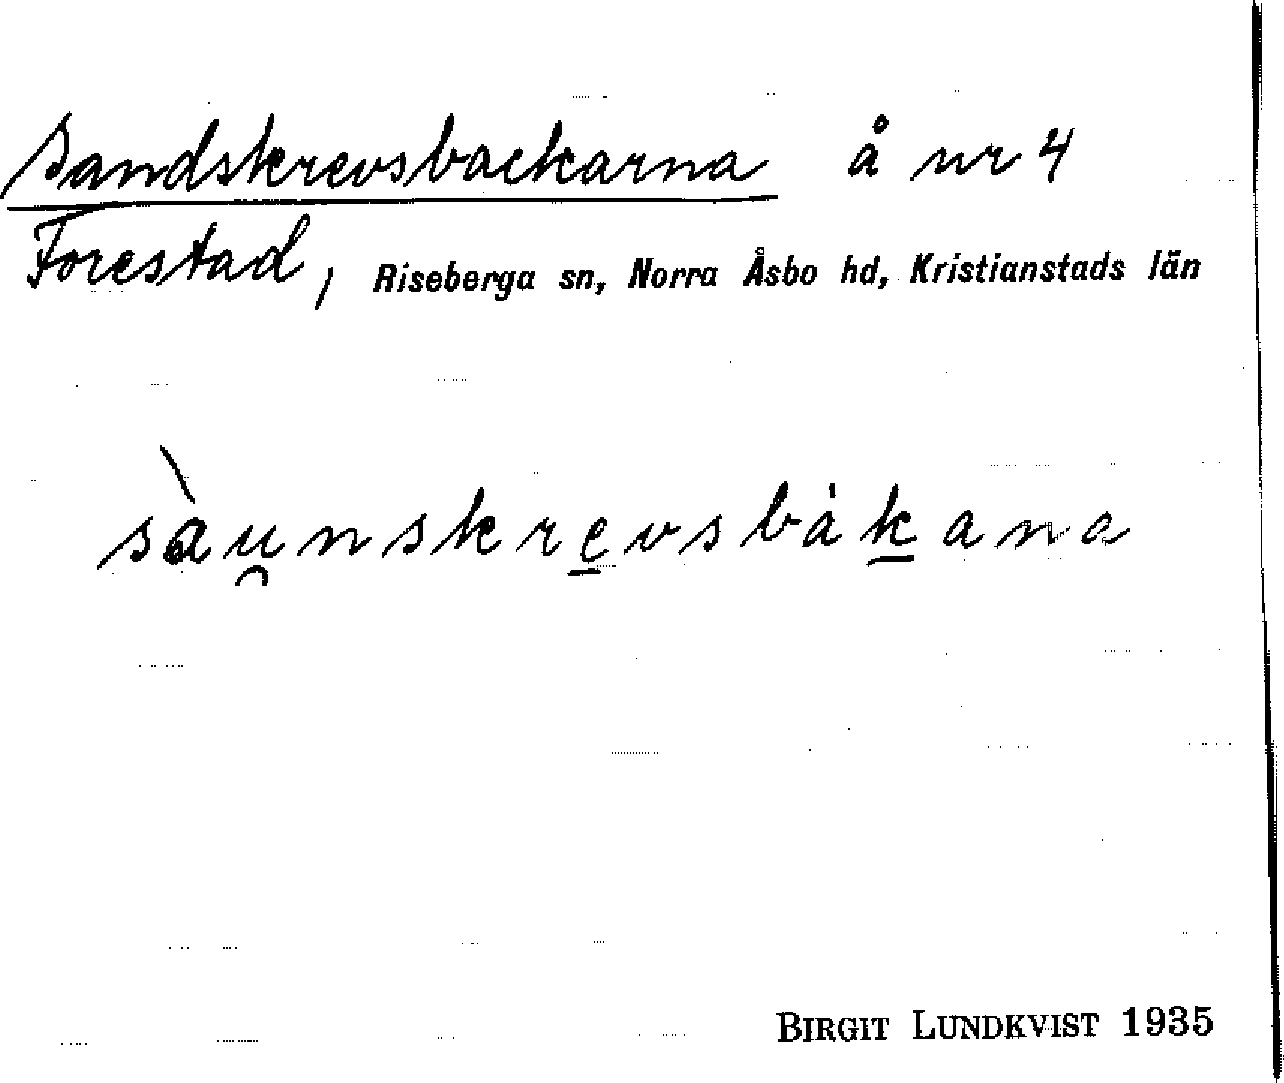 Sandskrevsbackarna å nr 4
Forestad, Riseberga sn, Norra Åsbo hd, Kristianstads län
sàu̯nskre̱vsbáḵana
BIRGIT LUNDKVIST 1935